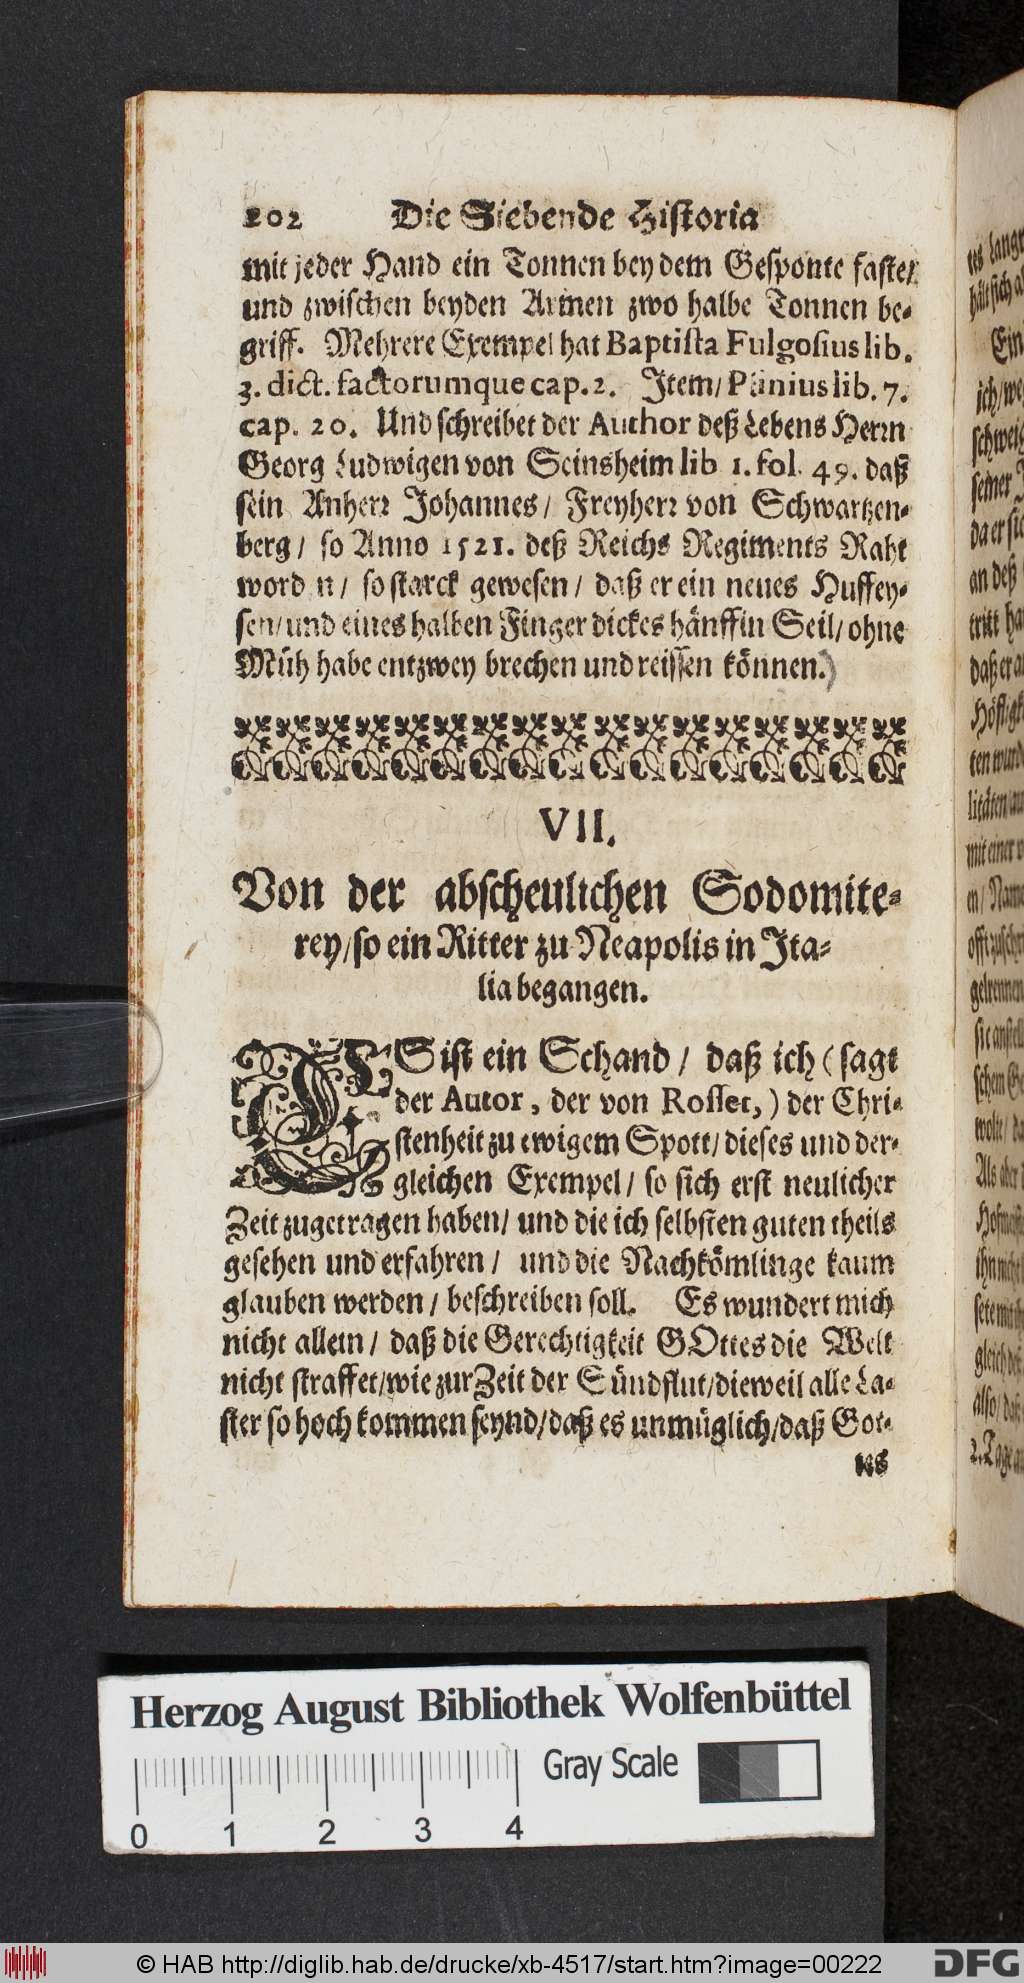 202 Die Siebende Historia
mit jeder Hand ein Tonnen bey dem Gesponte faste/
und zwischen beyden Armen zwo halbe Tonnen be-
griff. Mehrere Exempel hat Baptista Fulgosius lib.
3. dict. factorumque cap. 2. Item/ Plinius lib. 7.
cap. 20. Und schreibet der Author deß Lebens Herrn
Georg Ludwigen von Seinsheim lib 1. fol. 49. daß
sein Anherr Johannes/ Freyherr von Schwartzen-
berg/ so Anno 1521. deß Reichs Regiments Raht
word n/ so starck gewesen/ daß er ein neues Huffey-
sen/ und eines halben Finger dickes hänffin Seil/ ohne
Müh habe entzwey brechen und reissen können.)
VII.
Von der abscheulichen Sodomite-
rey/ so ein Ritter zu Neapolis in Ita-
lia begangen.
ES ist ein Schand/ daß ich (sagt
der Autor, der von Rosset,) der Chri-
stenheit zu ewigem Spott/ dieses und der-
gleichen Exempel/ so sich erst neulicher
Zeit zugetragen haben/ und die ich selbsten guten theils
gesehen und erfahren/ und die Nachkömlinge kaum
glauben werden/ beschreiben soll. Es wundert mich
nicht allein/ daß die Gerechtigkeit GOttes die Welt
nicht straffet/ wie zur Zeit der Sündflut/ dieweil alle La-
ster so hoch kommen seynd/ daß es unmüglich/ daß Got-
tes
Herzog August Bibliothek Wolfenbüttel
Gray Scale
0 1 2 3 4
© HAB http://diglib.hab.de/drucke/xb-4517/start.htm?image=00222
DFG